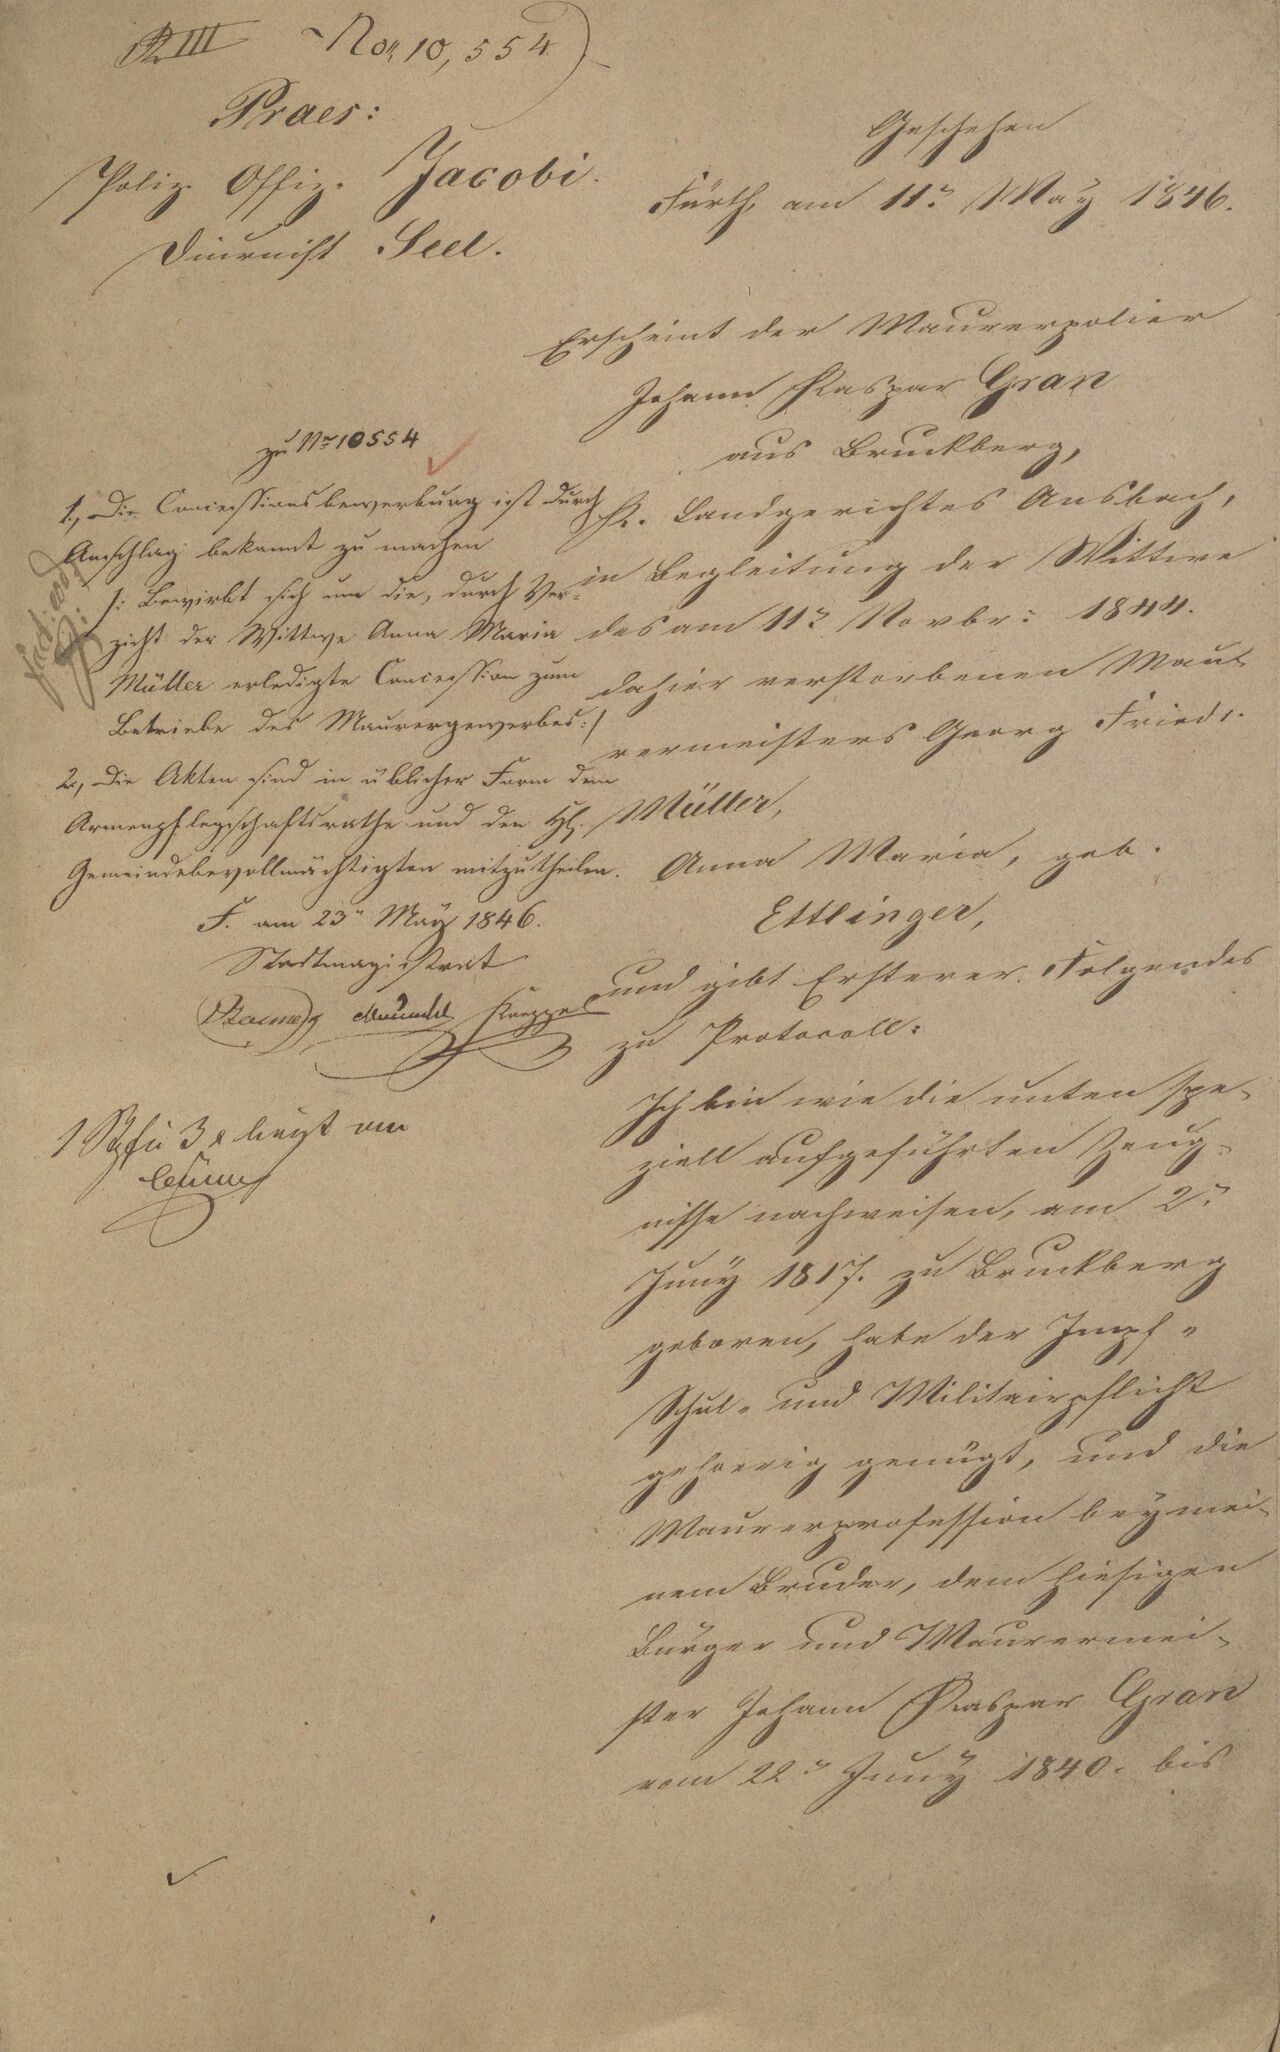 III Nor. 10,554
Praes:
Poliz. Offiz. Jacobi.
Diurnist Seel.
Geschehen
Fürth, am 11n. May 1846.
Erscheint der Maurerpolier
Johann Kaspar Gran
aus Bruckberg,
K. Landgerichtes Ansbach,
in Begleitung der Wittwe
des am 11n. Novbr: 1844.
dahier verstorbenen Mau
rermeisters Georg Friedr.
Müller,
Anna Maria, geb.
Ettlinger,
und gibt Ersterer Folgendes
zu Protocoll:
Ich bin wie die unten spe-
ziell aufgeführten Zeug-
nisse nachweisen, am 2n.
Juny 1817. zu Bruckberg
geboren, habe der Impf-
Schul- und Militairpflicht
gehoerig genügt, und die
Maurerprofession bey mei-
nem Bruder, dem hiesigen
Bürger und Maurermei-
ster Johann Kaspar Gran
vom 22n. Juny 1840. bis
zu Nr. 10554
1., Die Concessionsbewerbung ist durch
Anschlag bekannt zu machen
/: Bewirbt sich um die, durch Ver-
zicht der Wittwe Anna Maria
Müller erledigte Concession zum
Betriebe des Maurergewerbes :/
2., Die Akten sind in üblicher Form dem
Armenpflegschaftsrathe und den HH.
Gemeindebevollmächtigten mitzutheilen.
F. am 23n May 1846.
Stadtmagistrat